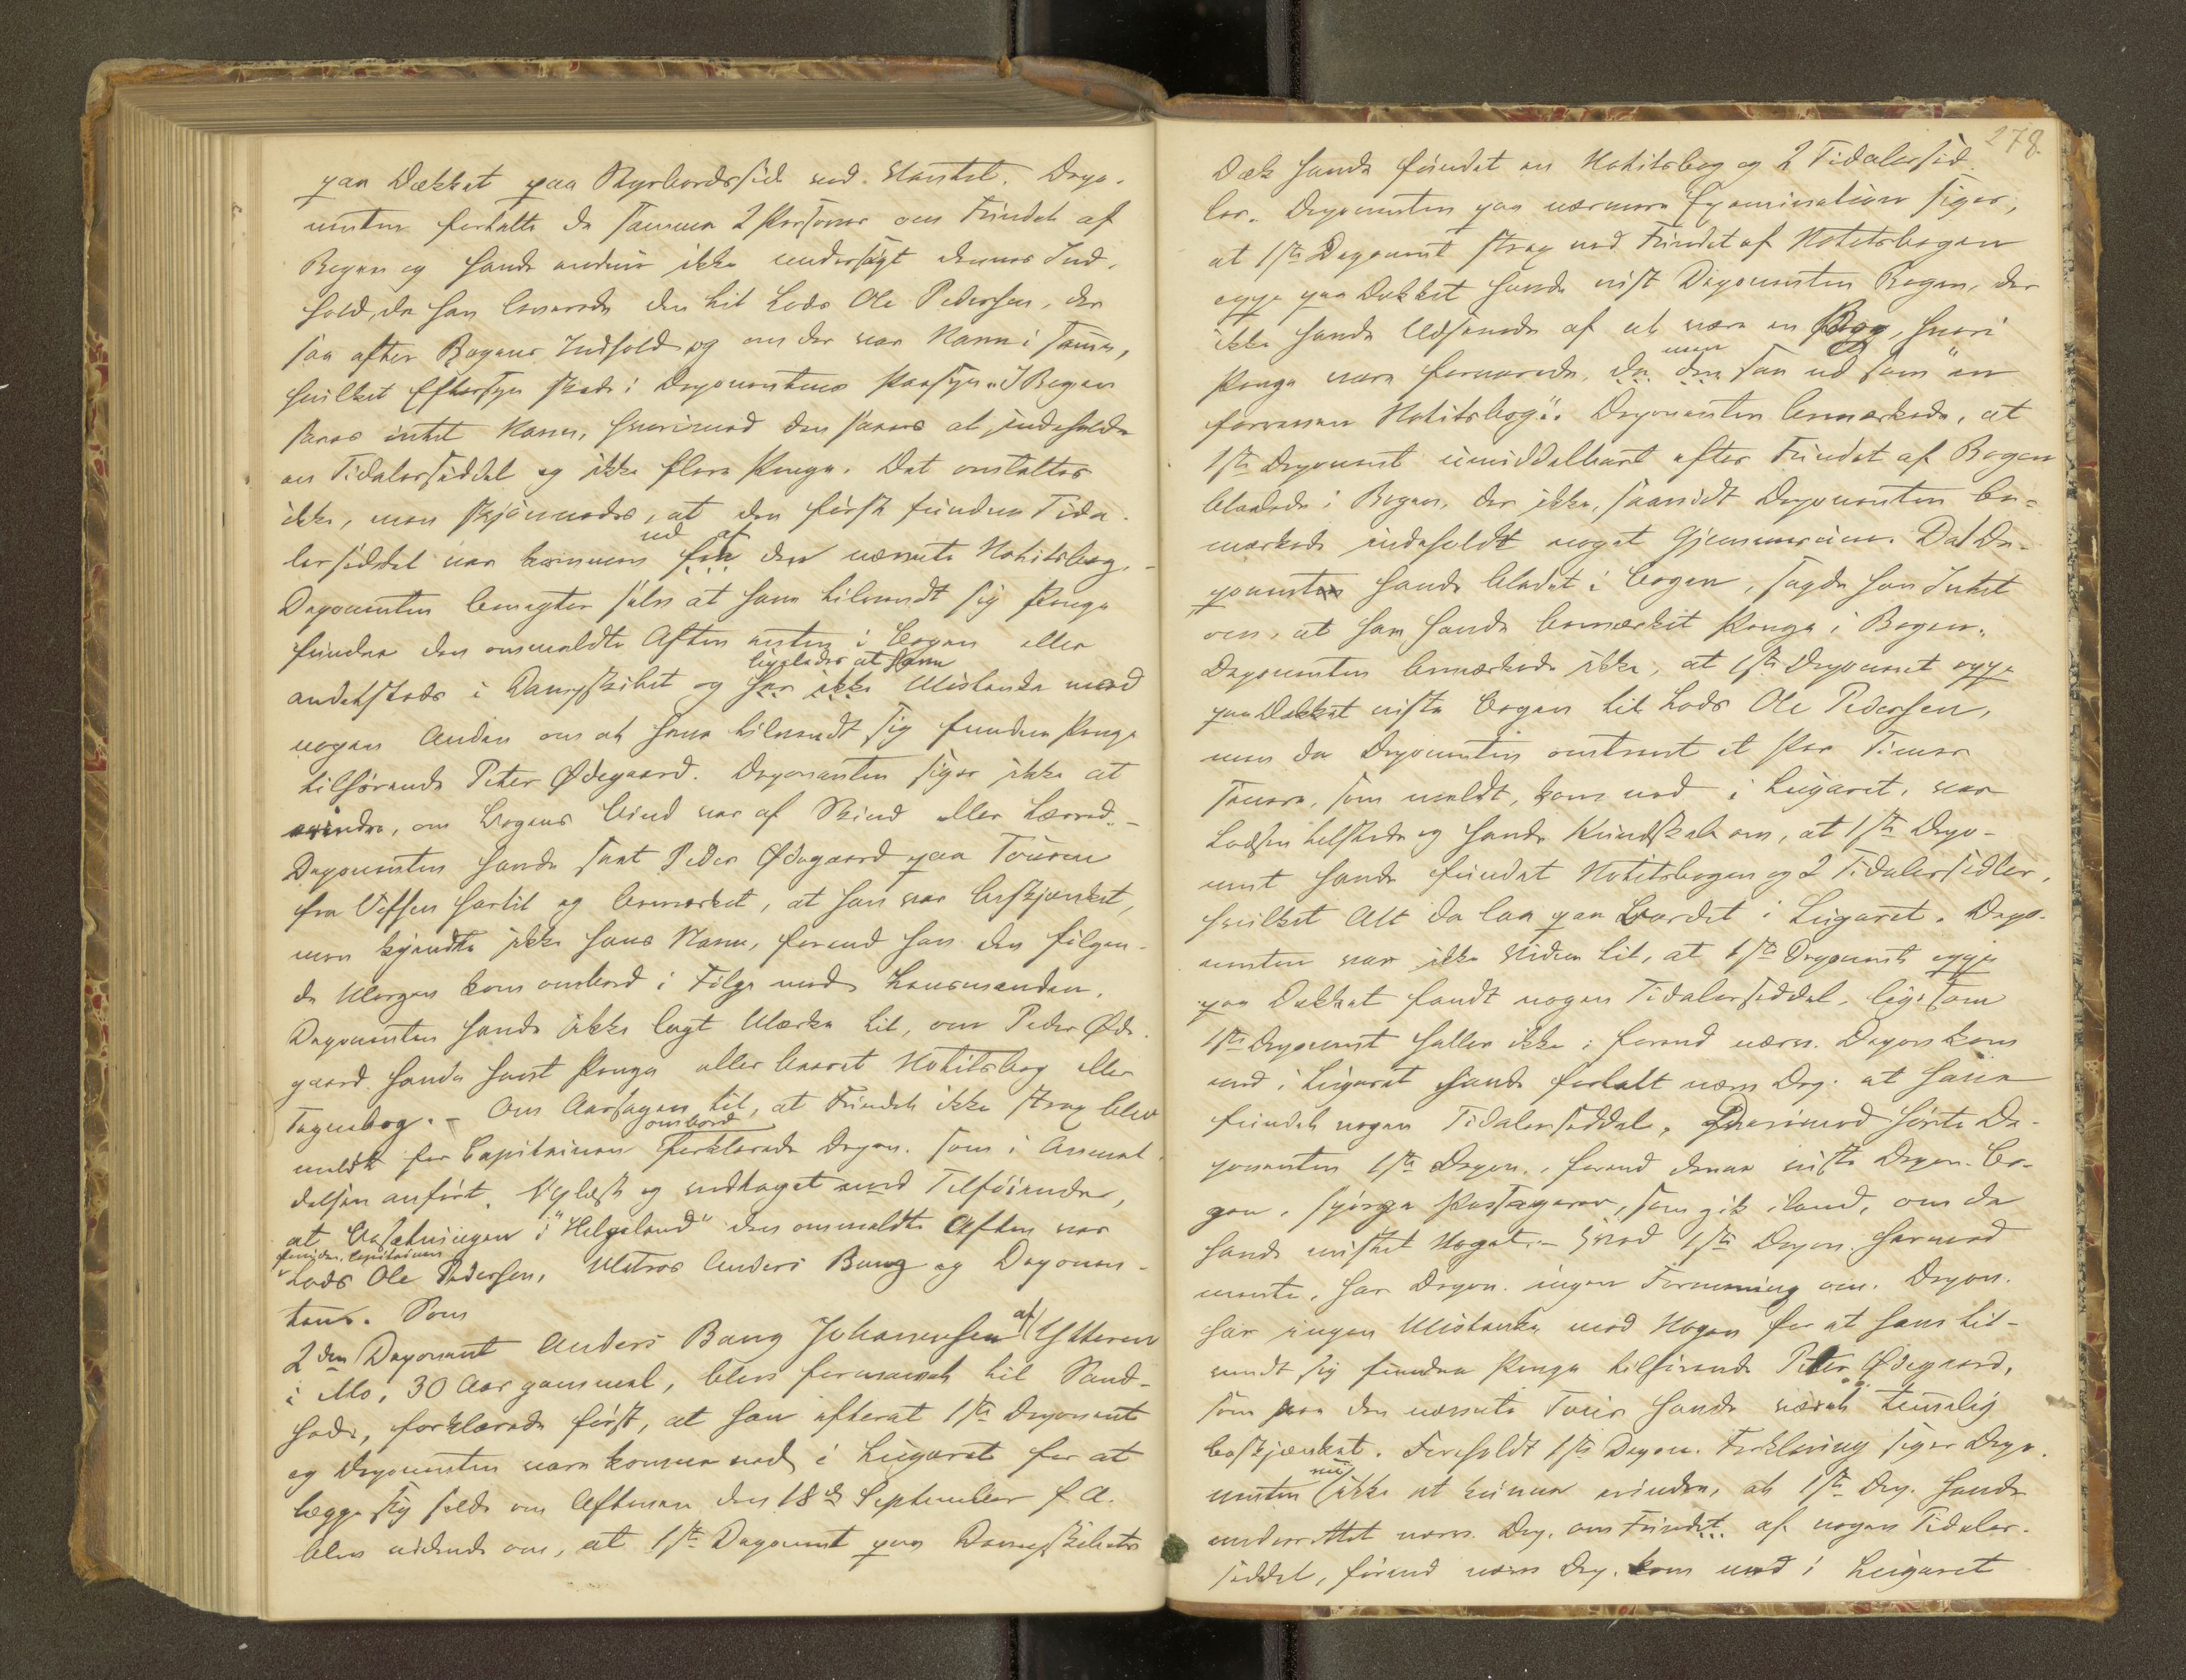 paa Dækket paa Styrbordsside ved Vantet. Depo-
nenten fortalte de samme 2 Personer om Fundet af
Bogen og havde endnu ikke undersøgt dennes Ind-
hold, da han leverede den til Lods Ole Pedersen, der
saa efter Bogens Indhold og om der var Navn i samme,
hvilket Eftersyn skede i Deponentens Paasyn. I Bogen
fandtes intet Navn, hvorimod den fandtes at indeholde
en Tidalerseddel og ikke flere Penge. Det omtaltes
ikke, men skjønnedes, at den først fundne Tida-
lerseddel var kommen ud af den nævnte Notitsbog. -
Deponenten benegter selv at have tilvendt sig Penge
fundne den ommeldte Aften enten i Bogen eller
andetsteds i Dampskibet og ligeledes at have Mistanke mod
nogen Anden om at have tilvendt sig fundne Penge
tilhørende Peter Ødegaard. Deponenten siger ikke at
erindre, om Bogens Bind var af Skind eller Lærred. -
Deponenten havde seet Peder Ødegaard paa Touren
fra Vefsen hertil og bemærket, at han var beskjænket,
men kjendte ikke hans Navn, forend han den følgen-
de Morgen kom ombord i Følge med Lensmanden.
Deponenten havde ikke lagt Mærke til, om Peder Øde-
gaard havde havt Penge eller baaret Notitsbog eller
Tegnebog. - Om Aarsagen til, at Fundet ikke strax blev
meldt for Capitainen ombord forklarede Depon. som i Anmel-
delsen anført. Oplæst og vedtaget med Tilføiende,
at Besætningen i "Helgeland" den ommeldte Aften var
foruden Capitainen
Lods Ole Pedersen, Matros Anders Bang og Deponen-
ten. Som
2den Deponent Anders Bang Johannesen af Ytteren
i Mo, 30 Aar gammel, blev formanet til Sand-
hed, forklarede først, at han efterat 1ste Deponent
og Deponenten vare komne ned i Lugaret for at
lægge sig silde om Aftenen den 18de September f. A.
blev vidende om, at 1ste Deponent paa Dampskibets
278.
Dæk havde fundet en Notitsbog og 2 Tidalersed-
ler. Deponenten paa nærmere Examination siger,
at 1ste Deponent strax ved Fundet af Notitsbogen
oppe paa Dækket havde vist Deponenten Bogen, der
ikke havde Udseende af at være en Bog, hvori
Penge vare forvarede, men saa ud som "en
foreven Notitsbog". Deponenten bemærkede, at
1ste Deponent umiddelbart efter Fundet af Bogen
bladede i Bogen, der ikke, saavidt Deponenten be-
mærkede indeholdt noget Gjemmerum. Da De-
ponenten havde bladet i Bogen, sagde han Intet
om, at han havde bemærket Penge i Bogen.
Deponenten bemærkede ikke, at 1ste Deponent oppe
paa Dækket viste Bogen til Lods Ole Pedersen,
men da Deponenten omtrent et Par Timer
senere, som meldt, kom ned i Lugaret, var
Lodsen tilstede og havde Kundskab om, at 1ste Depo-
nent havde fundet Notitsbogen og 2 Tidalersedler,
hvilket Alt da laa paa Bordet i Lugaret. Depo-
nenten var ikke Vidne til, at 1ste Deponent oppe
paa Dækket fandt nogen Tidalerseddel, ligesom
1ste Deponent heller ikke, forend nærv. Depon kom
ned i Lugaret havde fortalt nærv Dep. at have
fundet nogen Tidalerseddel. Derimod hørte De-
ponenten 1ste Depon., forend denne viste Depon. Bo-
gen, spørge Passagerer, som gik iland, om de
havde mistet Noget. - Hvad 1ste Depon. hermed
mente, har Depon. ingen Formening om. Depon.
har ingen Mistanke mod Nogen for at have til-
vendt sig fundne Penge tilhørende Peter Ødegaard,
som paa den nævnte Tour havde været temmelig
beskjænket. Foreholdt 1ste Depon. Forklaring siger Depo-
nenten nu ikke at kunne erindre, at 1ste Dep. havde
underrettet nærv. Dep. om Fundet af nogen Tidaler-
seddel, førend nærv Dep. kom ned i Lugaret